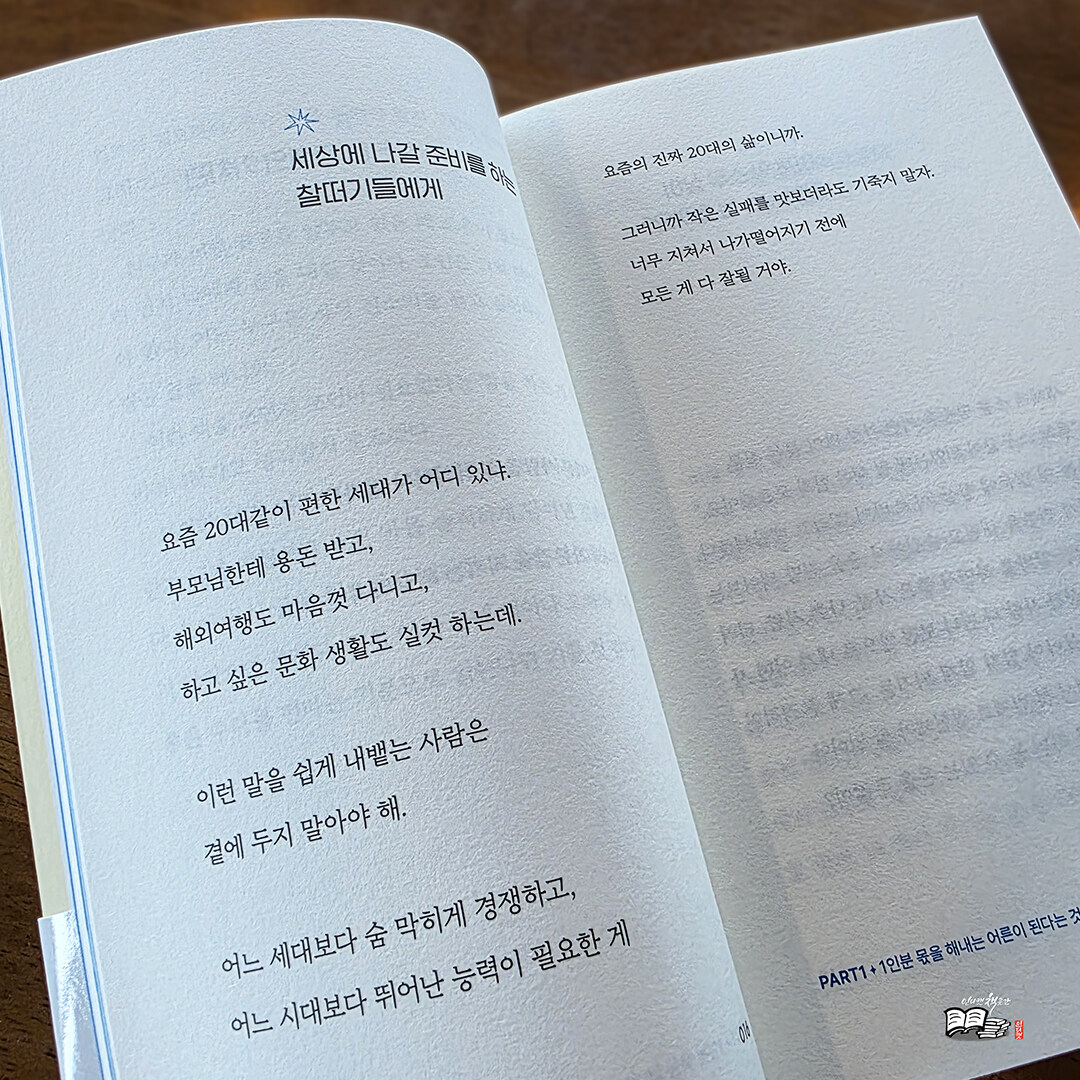 세상에 나갈 준비를 하는
찰떠기들에게
요즘 20대같이 편한 세대가 어디 있냐.
부모님한테 용돈 받고,
해외여행도 마음껏 다니고,
하고 싶은 문화 생활도 실컷 하는데.
이런 말을 쉽게 내뱉는 사람은
곁에 두지 말아야 해.
어느 세대보다 숨 막히게 경쟁하고,
어느 시대보다 뛰어난 능력이 필요한 게
요즘의 진짜 20대의 삶이니까.
그러니까 작은 실패를 맛보더라도 기죽지 말자.
너무 지쳐서 나가떨어지기 전에
모든 게 다 잘될 거야.
PART1 + 1인분 몫을 해내는 어른이 된다는 것